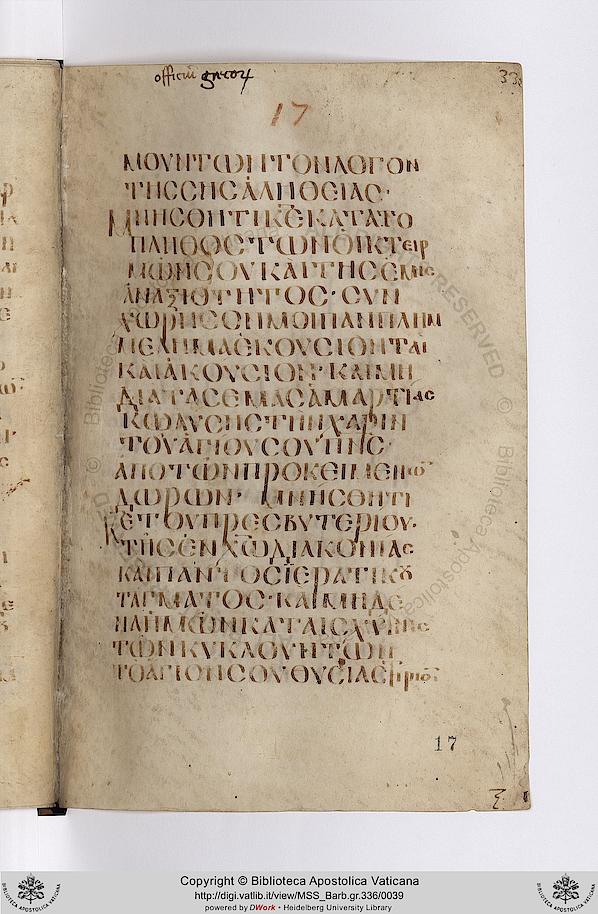 33
17
ΜΟΥΝΤΩΝΤΟΝΛΟΓΟΝ
ΤΗΣΣΗΣΑΛΗΘΕΙΑΣ·
ΜΝΗΣΘΗΤΙΚΕΚΑΤΑΤΟ
ΠΛΗΘΟΣΤΩΝΟΙΚΤΕΙΡ
ΜΩΝΣΟΥΚΑΙΤΗΣΕΜΗΣ
ΑΝΑΞΙΟΤΗΤΟΣ·ΣΥΝ
ΧΩΡΗΣΟΝΜΟΙΠΑΝΠΛΗΜ
ΜΕΛΗΜΑΕΚΟΥΣΙΟΝΤΑΙ
ΚΑΙΑΚΟΥΣΙΟΝ·ΚΑΙΜΗ
ΔΙΑΤΑΣΕΜΑΣΑΜΑΡΤΙΑΣ
ΚΩΛΥΣΗΣΤΗΝΧΑΡΙΝ
ΤΟΥΑΓΙΟΥΣΟΥΠΝΣ·
ΑΠΟΤΩΝΠΡΟΚΕΙΜΕΝΩ
ΔΩΡΩΝ· ΜΝΗΣΘΗΤΙ
ΚΕΤΟΥΠΡΕΣΒΥΤΕΡΙΟΥ·
ΤΗΣΕΝΧΩΔΙΑΚΟΝΙΑΣ
ΚΑΙΠΑΝΤΟΣΙΕΡΑΤΙΚΟΥ
ΤΑΓΜΑΤΟΣ·ΚΑΙΜΗΔΕ
ΝΑΗΜΩΝΚΑΤΑΙΣΧΥΝΗΣ
ΤΩΝΚΥΚΛΟΥΝΤΩΝ
ΤΟΑΓΙΟΝΣΟΥΘΥΣΙΑΣΤΗΡΙΟΝ
17
Copyright © Biblioteca Apostolica Vaticana
http://digi.vatlib.it/view/MSS_Barb.gr.336/0039
powered by DWork • Heidelberg University Library